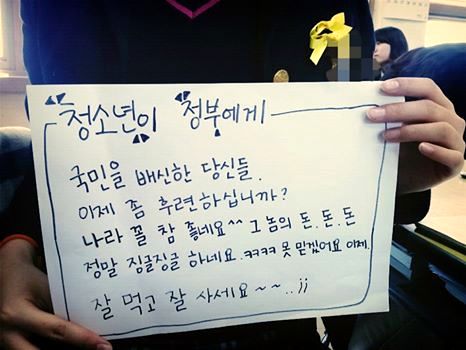 청소년이 정부에게
국민을 배신한 당신들.
이제 좀 후련하십니까?
나라 꼴 참 좋네요^^ 그 놈의 돈.돈.돈
정말 징글징글 하네요. ㅋㅋㅋㅋ 못 믿겠어요 이제.
잘 먹고 잘 사세요~~..;;